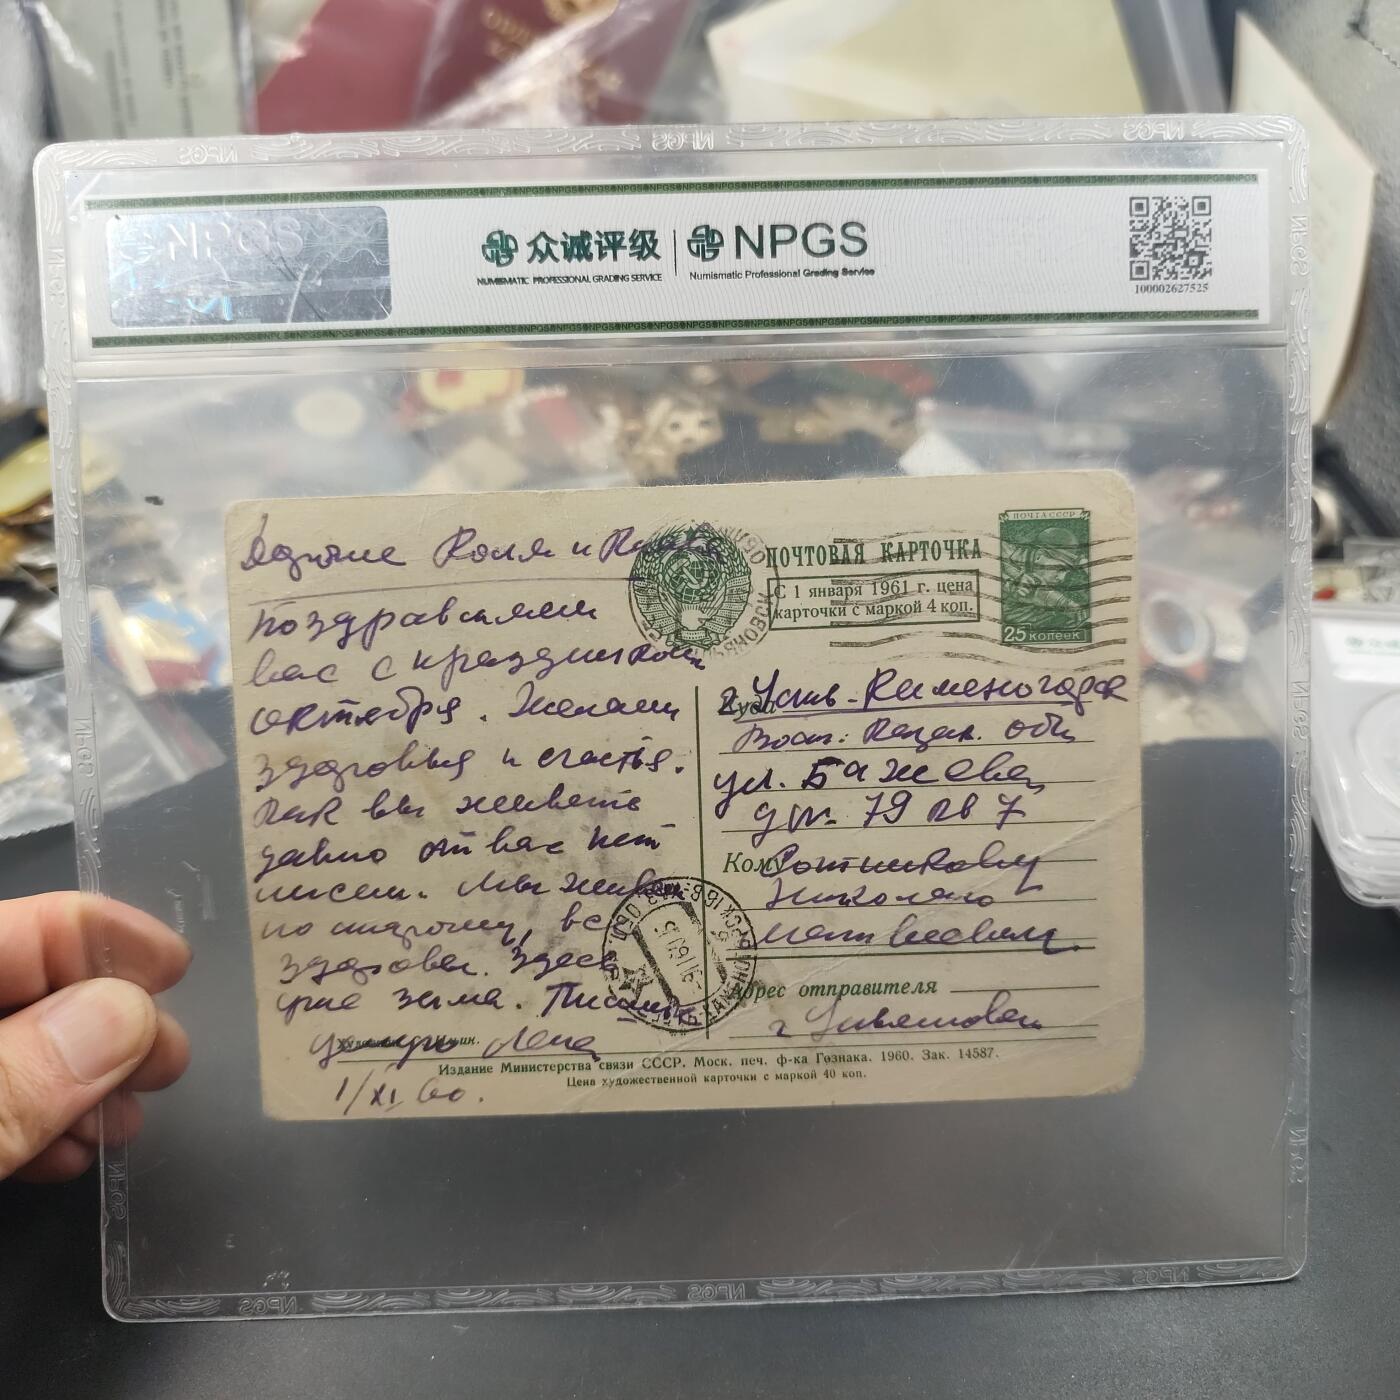 NPGS
众诚评级 NPGS
NUMISMATIC PROFESSIONAL GRADING SERVICE Numismatic Professional Grading Service
100002627525
Коля и
Поздравляем
вас с праздником
октября. Желаем
здоровья и счастья.
Как вы живете
давно от вас нет
писем. Мы живем
по старому, все
здоровы. Здесь
уже зима. Пишите
Целую Лена
1/XI 60.
ПОЧТОВАЯ КАРТОЧКА
С 1 января 1961 г. цена
карточки с маркой 4 коп.
ПОЧТА СССР
25 КОПЕЕК
Куда г. Усть-Каменогорск
Вост. Казах. обл.
ул. Бажова
д. 79 кв 7
Кому Сотникову
Николаю
Матвеевичу
Адрес отправителя
г Ульяновск
Издание Министерства связи СССР. Моск. печ. ф-ка Гознака. 1960. Зак. 14587.
Цена художественной карточки с маркой 40 коп.